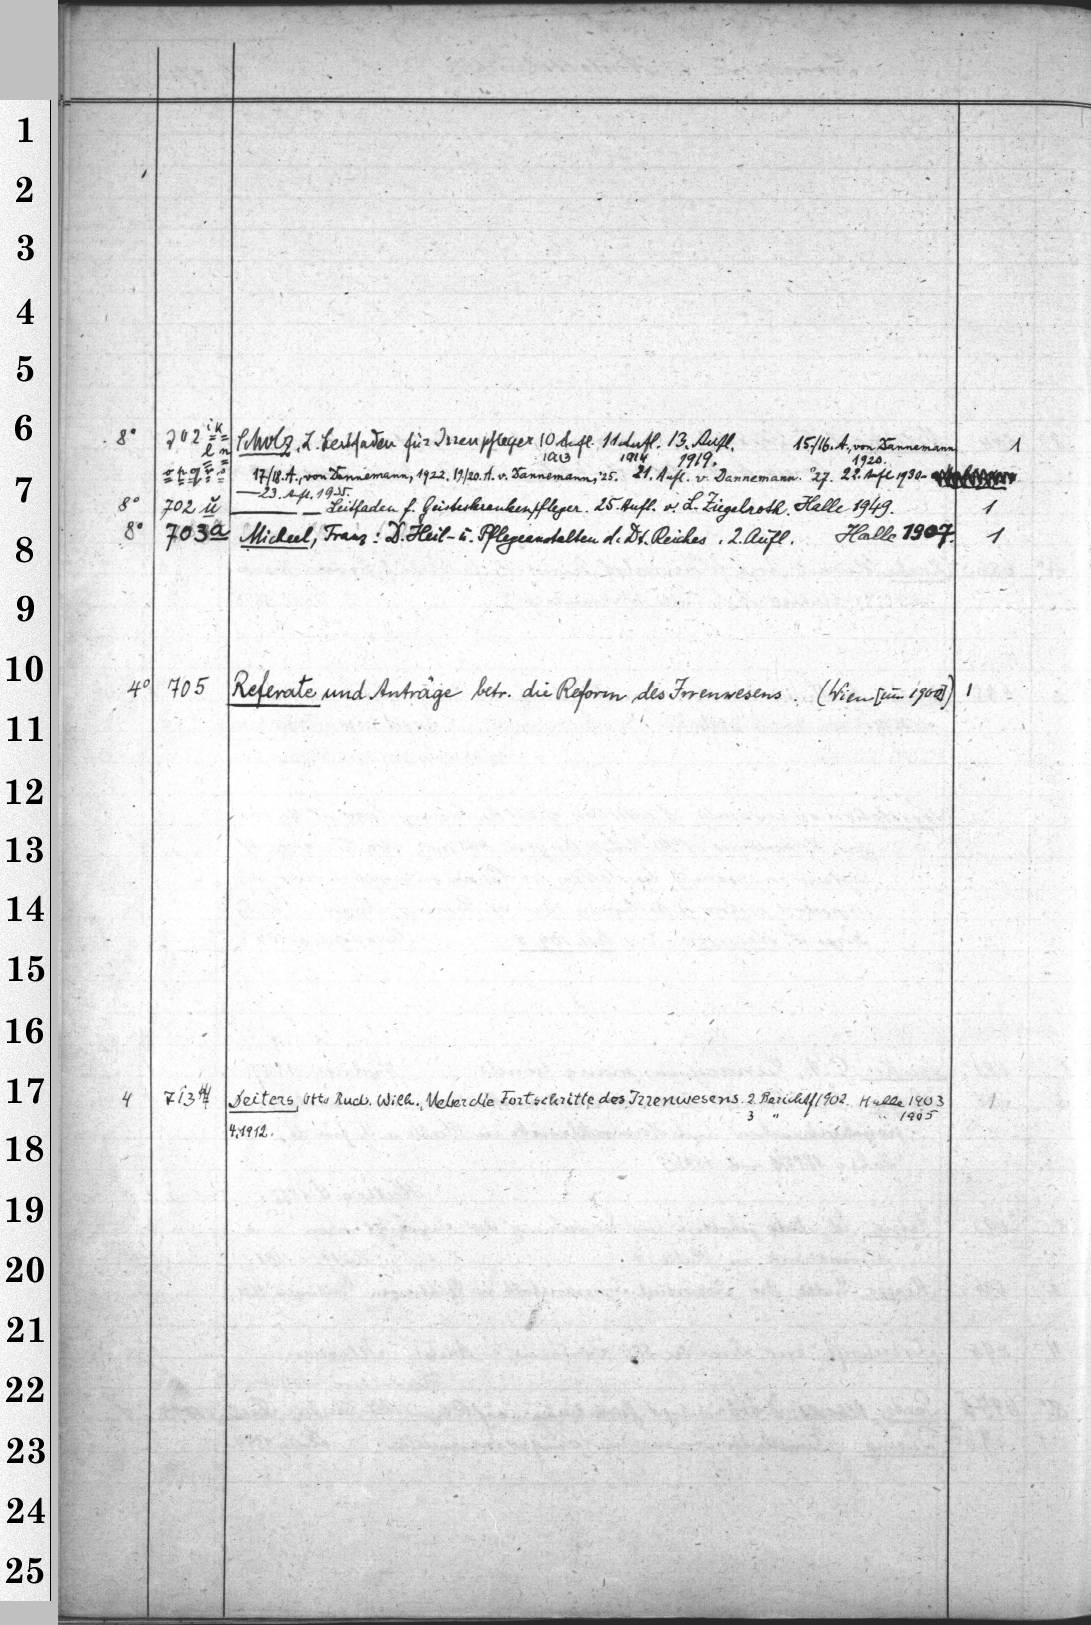 1
2
3
4
5
6
8° 702 i k l n Scholz, L. Leitfaden für Irrenpfleger 10 Aufl. 11 Aufl. 13. Aufl. 15/16. A., von Dannemann 1
1913 1914 1919. 1920.
7
o p q r s 17/18. A., von Dannemann, 1922. 19/20. A. v. Dannemann, '25. 21. Aufl. v. Dannemann. '27. 22. Aufl. 1930
— 23. Aufl. 1935.
8° 702 u — — Leitfaden f. Geisteskrankenpfleger. 25 Aufl. v. L. Ziegelroth. Halle 1949. 1
8
8° 703a Micheel, Franz: D. Heil- u. Pflegeanstalten d. Dt. Reiches. 2. Aufl. Halle 1907. 1
9
10
4° 705 Referate und Anträge betr. die Reform des Irrenwesens. (Wien [um 1900]) 1
11
12
13
14
15
16
17
4 713 Deiters, Otto Rud. Wilh., Ueber die Fortschritte des Irrenwesens. 2 Bericht f 1902. Halle 1903 1
3 " " 1905
4. 1912.
18
19
20
21
22
23
24
25